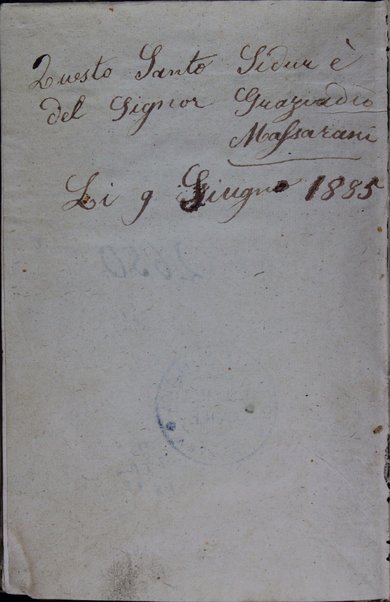 Questo Santo Sidur è
del Signor Graziadio
Massarani
Li 9 Giugno 1885
2680